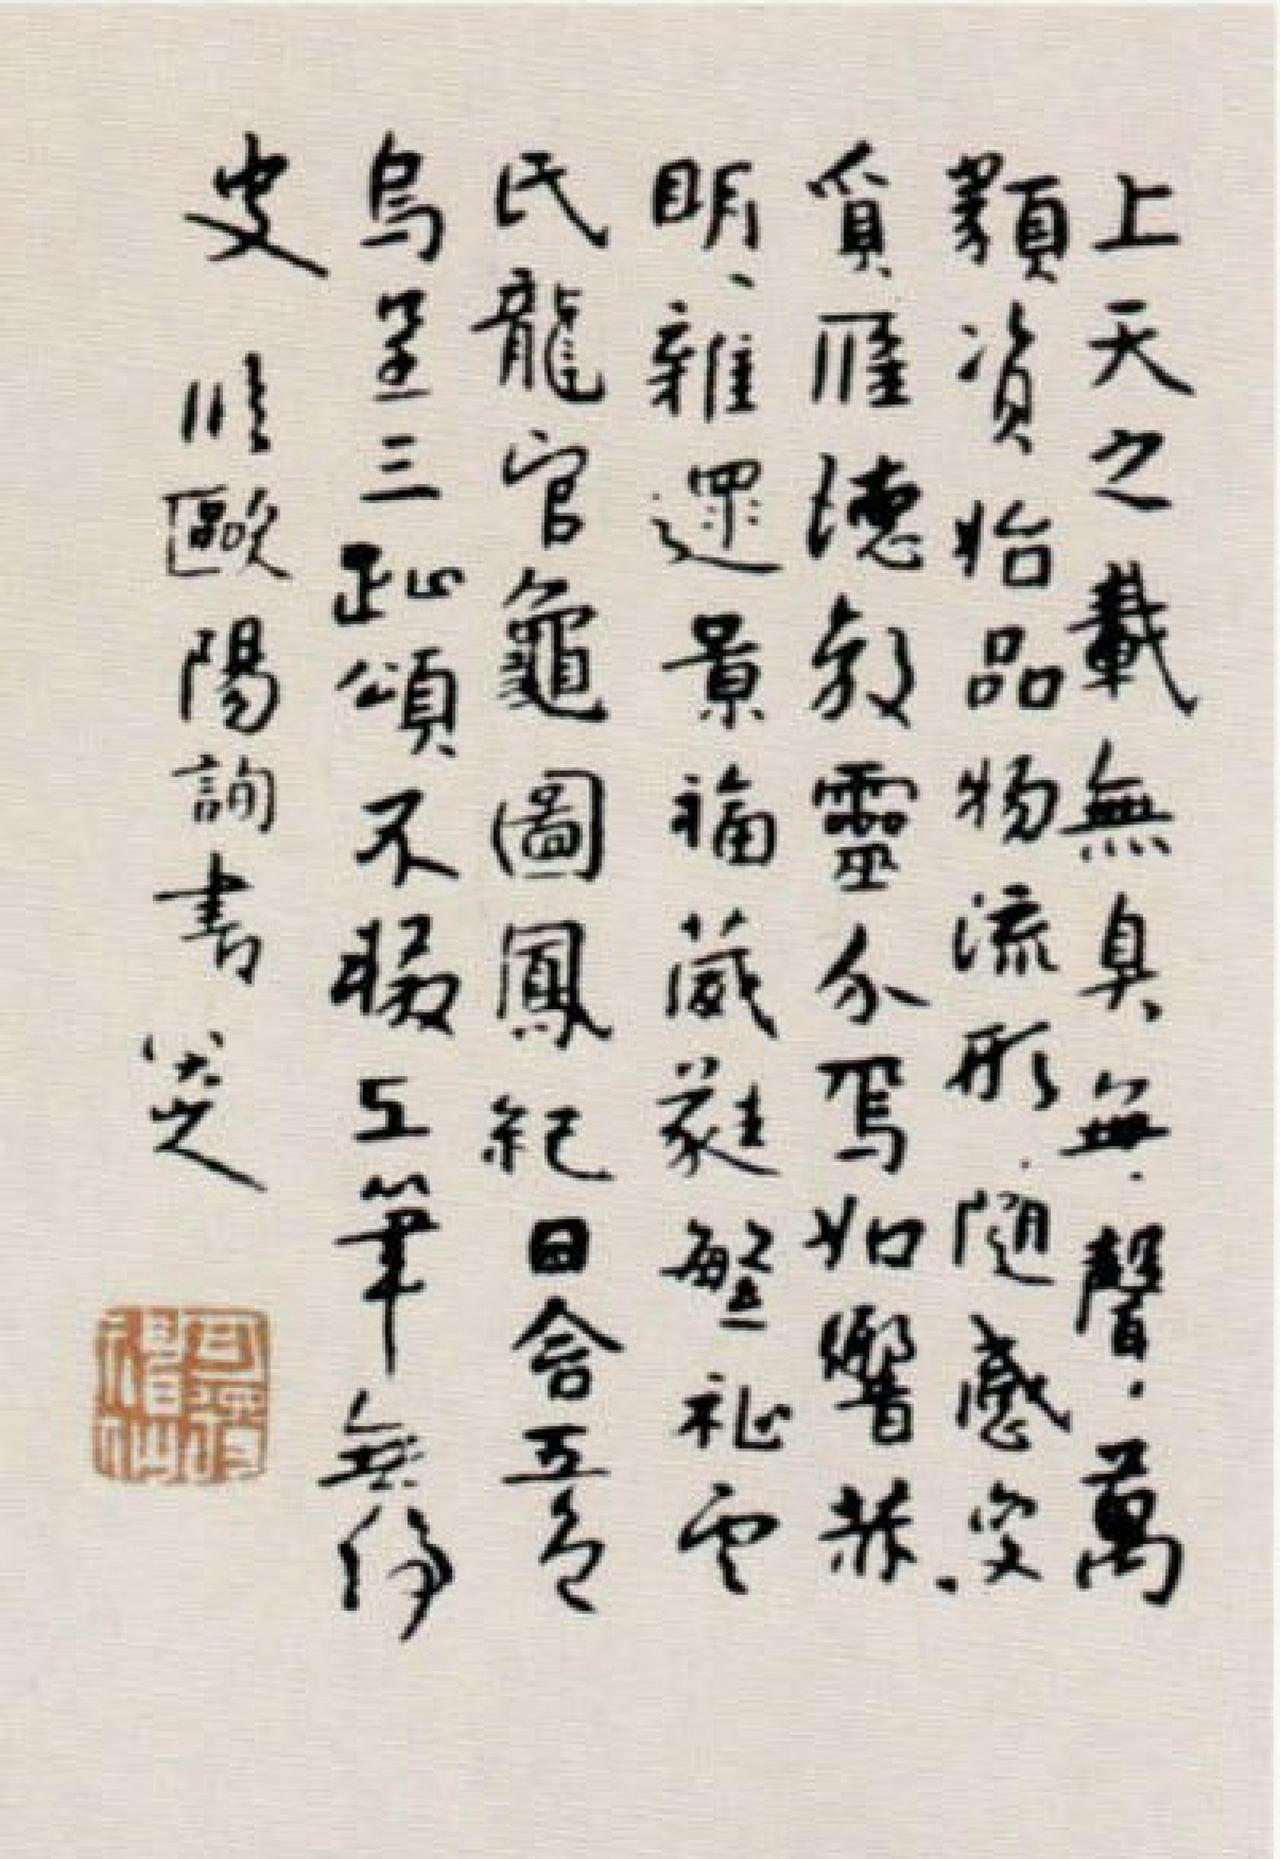 上天之載無臭無聲萬
類資始品物流形隨感變
質應德效靈介焉如響赫
明〻雜遝景福葳蕤繁祉雲
氏龍官龜圖鳳紀日含五色
烏呈三趾頌不輟工筆無停
史 臨歐陽詢書 八大山人